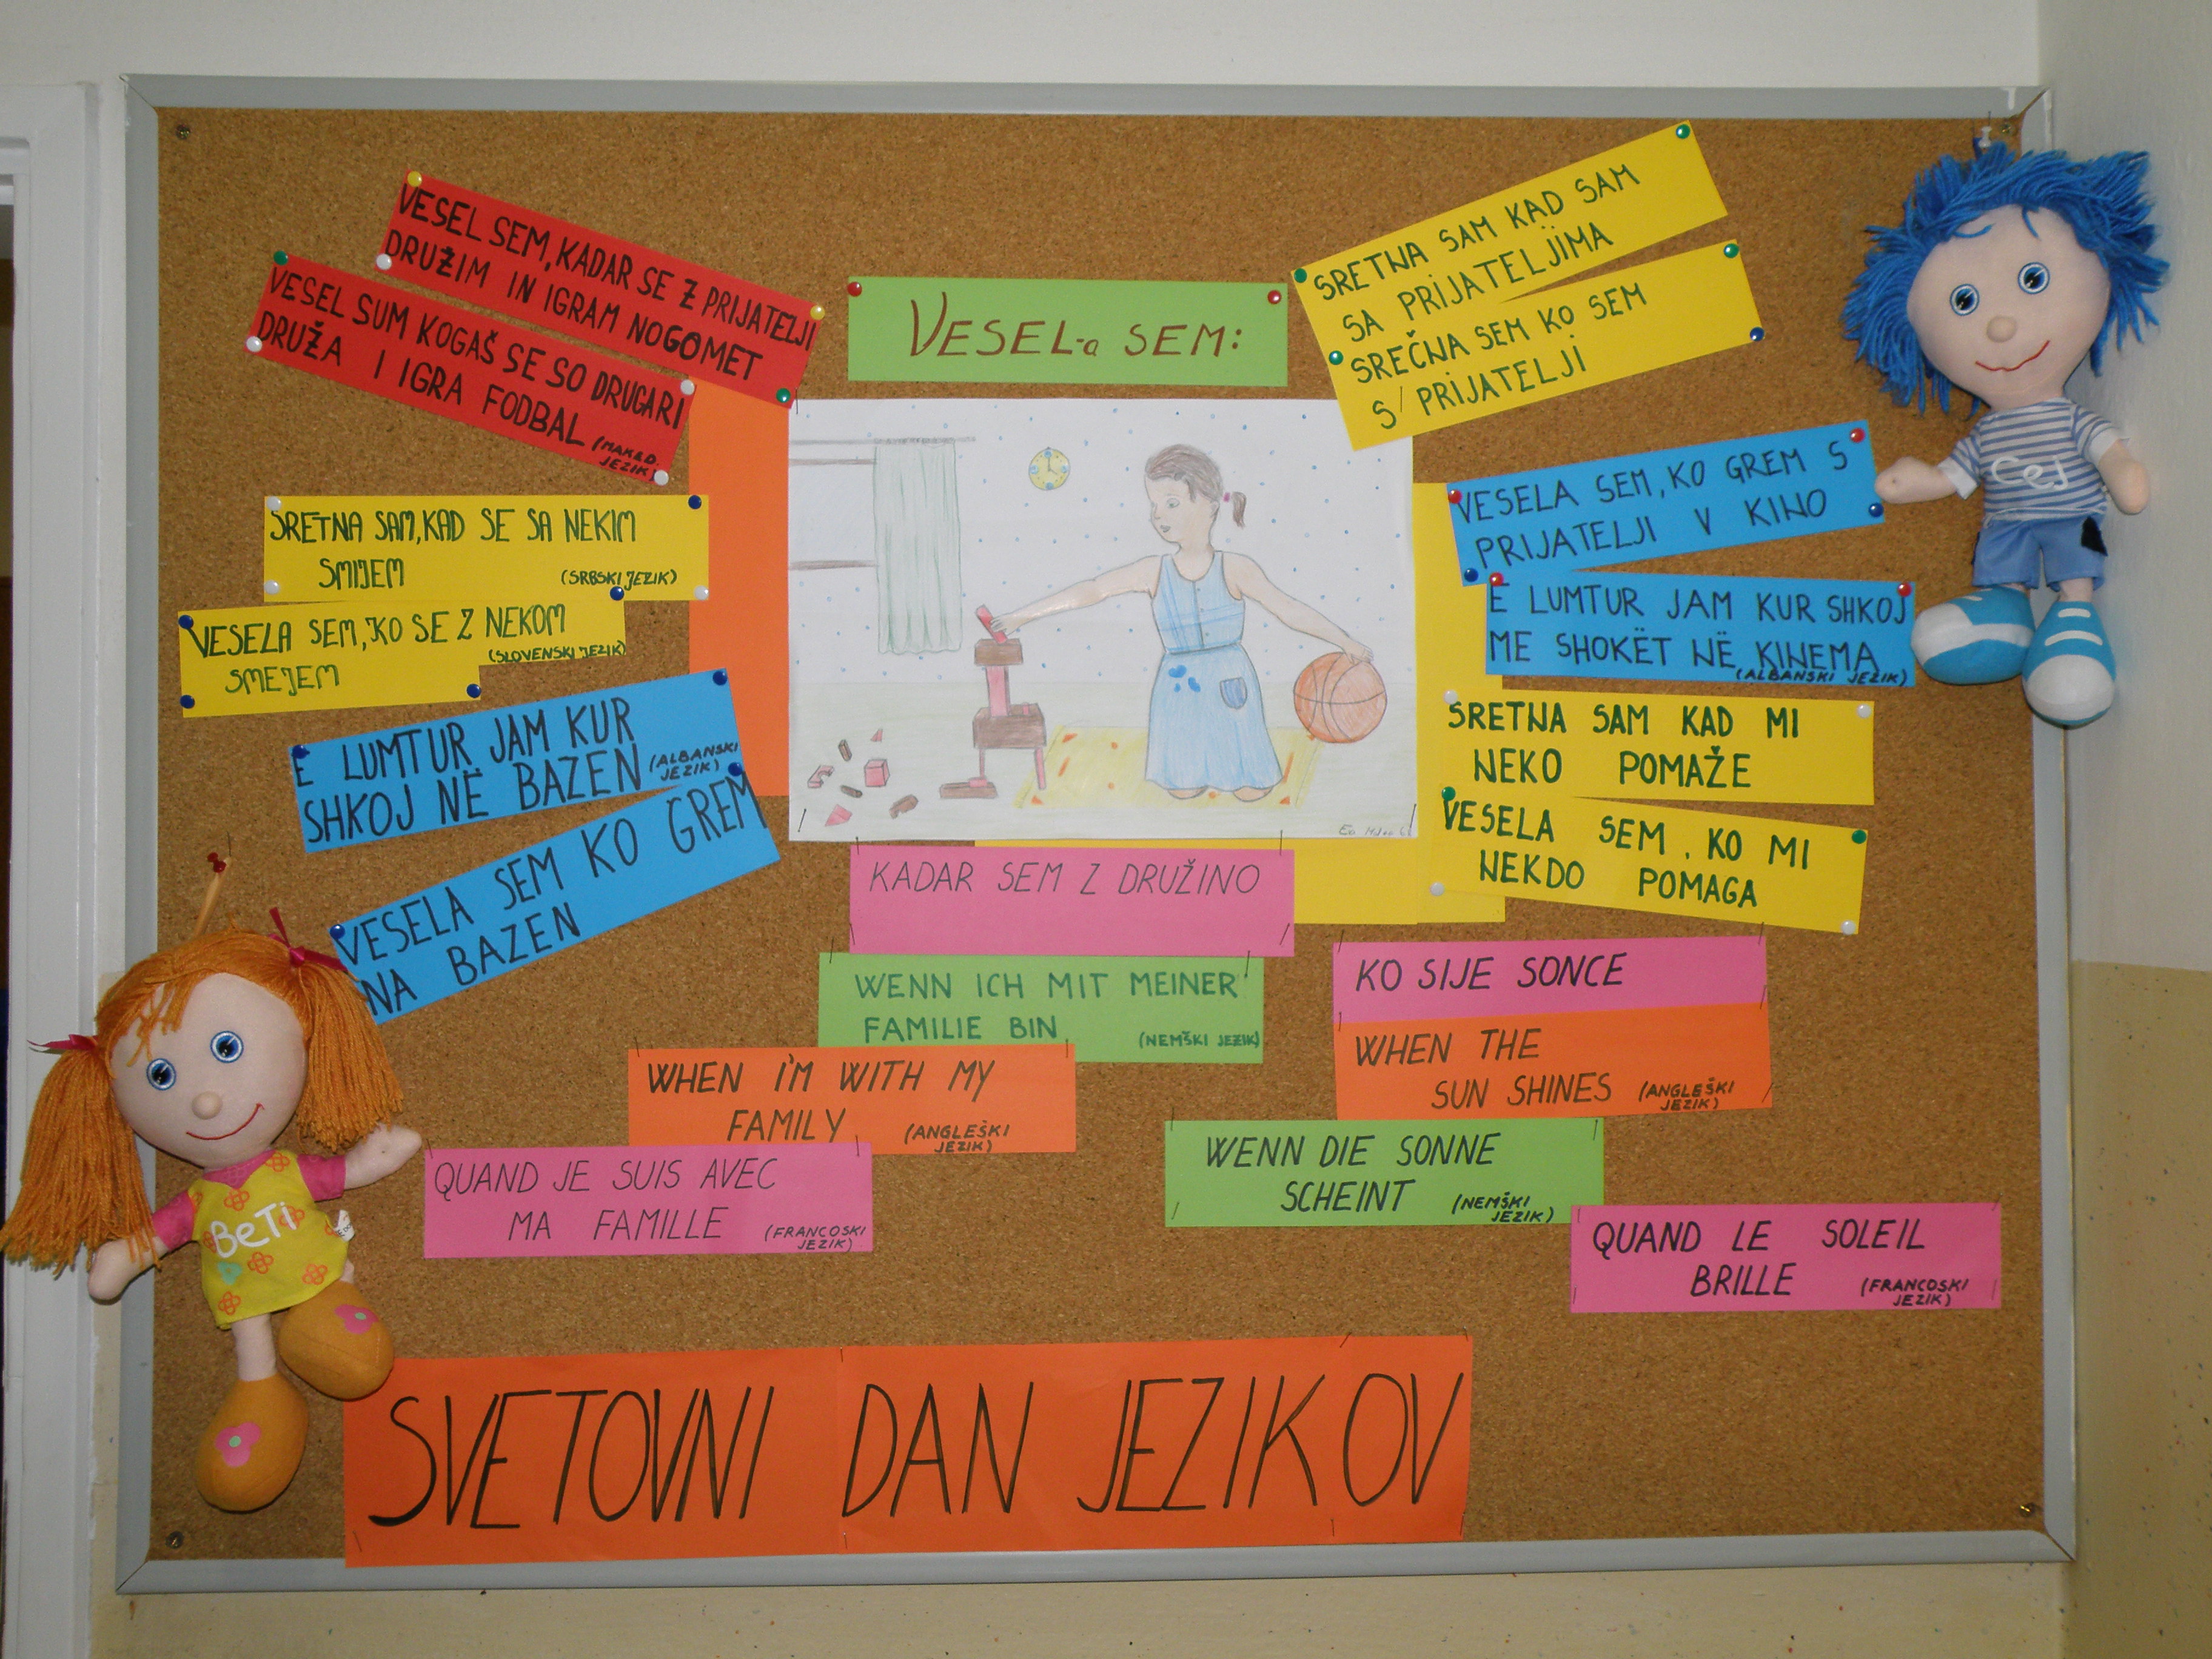 VESEL SEM, KADAR SE Z PRIJATELJI
DRUŽIM IN IGRAM NOGOMET
VESEL SUM KOGAŠ SE SO DRUGARI
DRUŽA I IGRA FODBAL
(MAKED.
JEZIK)
VESEL-a SEM:
SRETNA SAM KAD SAM
SA PRIJATELJIMA
SREČNA SEM KO SEM
S PRIJATELJI
SRETNA SAM, KAD SE SA NEKIM
SMIJEM (SRBSKI JEZIK)
VESELA SEM, KO SE Z NEKOM
SMEJEM (SLOVENSKI JEZIK)
E LUMTUR JAM KUR
SHKOJ NË BAZEN (ALBANSKI
JEZIK)
VESELA SEM KO GREM
NA BAZEN
VESELA SEM, KO GREM S
PRIJATELJI V KINO
E LUMTUR JAM KUR SHKOJ
ME SHOKËT NË KINEMA
(ALBANSKI JEZIK)
SRETNA SAM KAD MI
NEKO POMAŽE
VESELA SEM, KO MI
NEKDO POMAGA
CEJ
KADAR SEM Z DRUŽINO
WENN ICH MIT MEINER
FAMILIE BIN (NEMŠKI JEZIK)
WHEN I'M WITH MY
FAMILY (ANGLEŠKI
JEZIK)
QUAND JE SUIS AVEC
MA FAMILLE (FRANCOSKI
JEZIK)
KO SIJE SONCE
WHEN THE
SUN SHINES (ANGLEŠKI
JEZIK)
WENN DIE SONNE
SCHEINT (NEMŠKI
JEZIK)
QUAND LE SOLEIL
BRILLE (FRANCOSKI
JEZIK)
BeTi
SVETOVNI DAN JEZIKOV